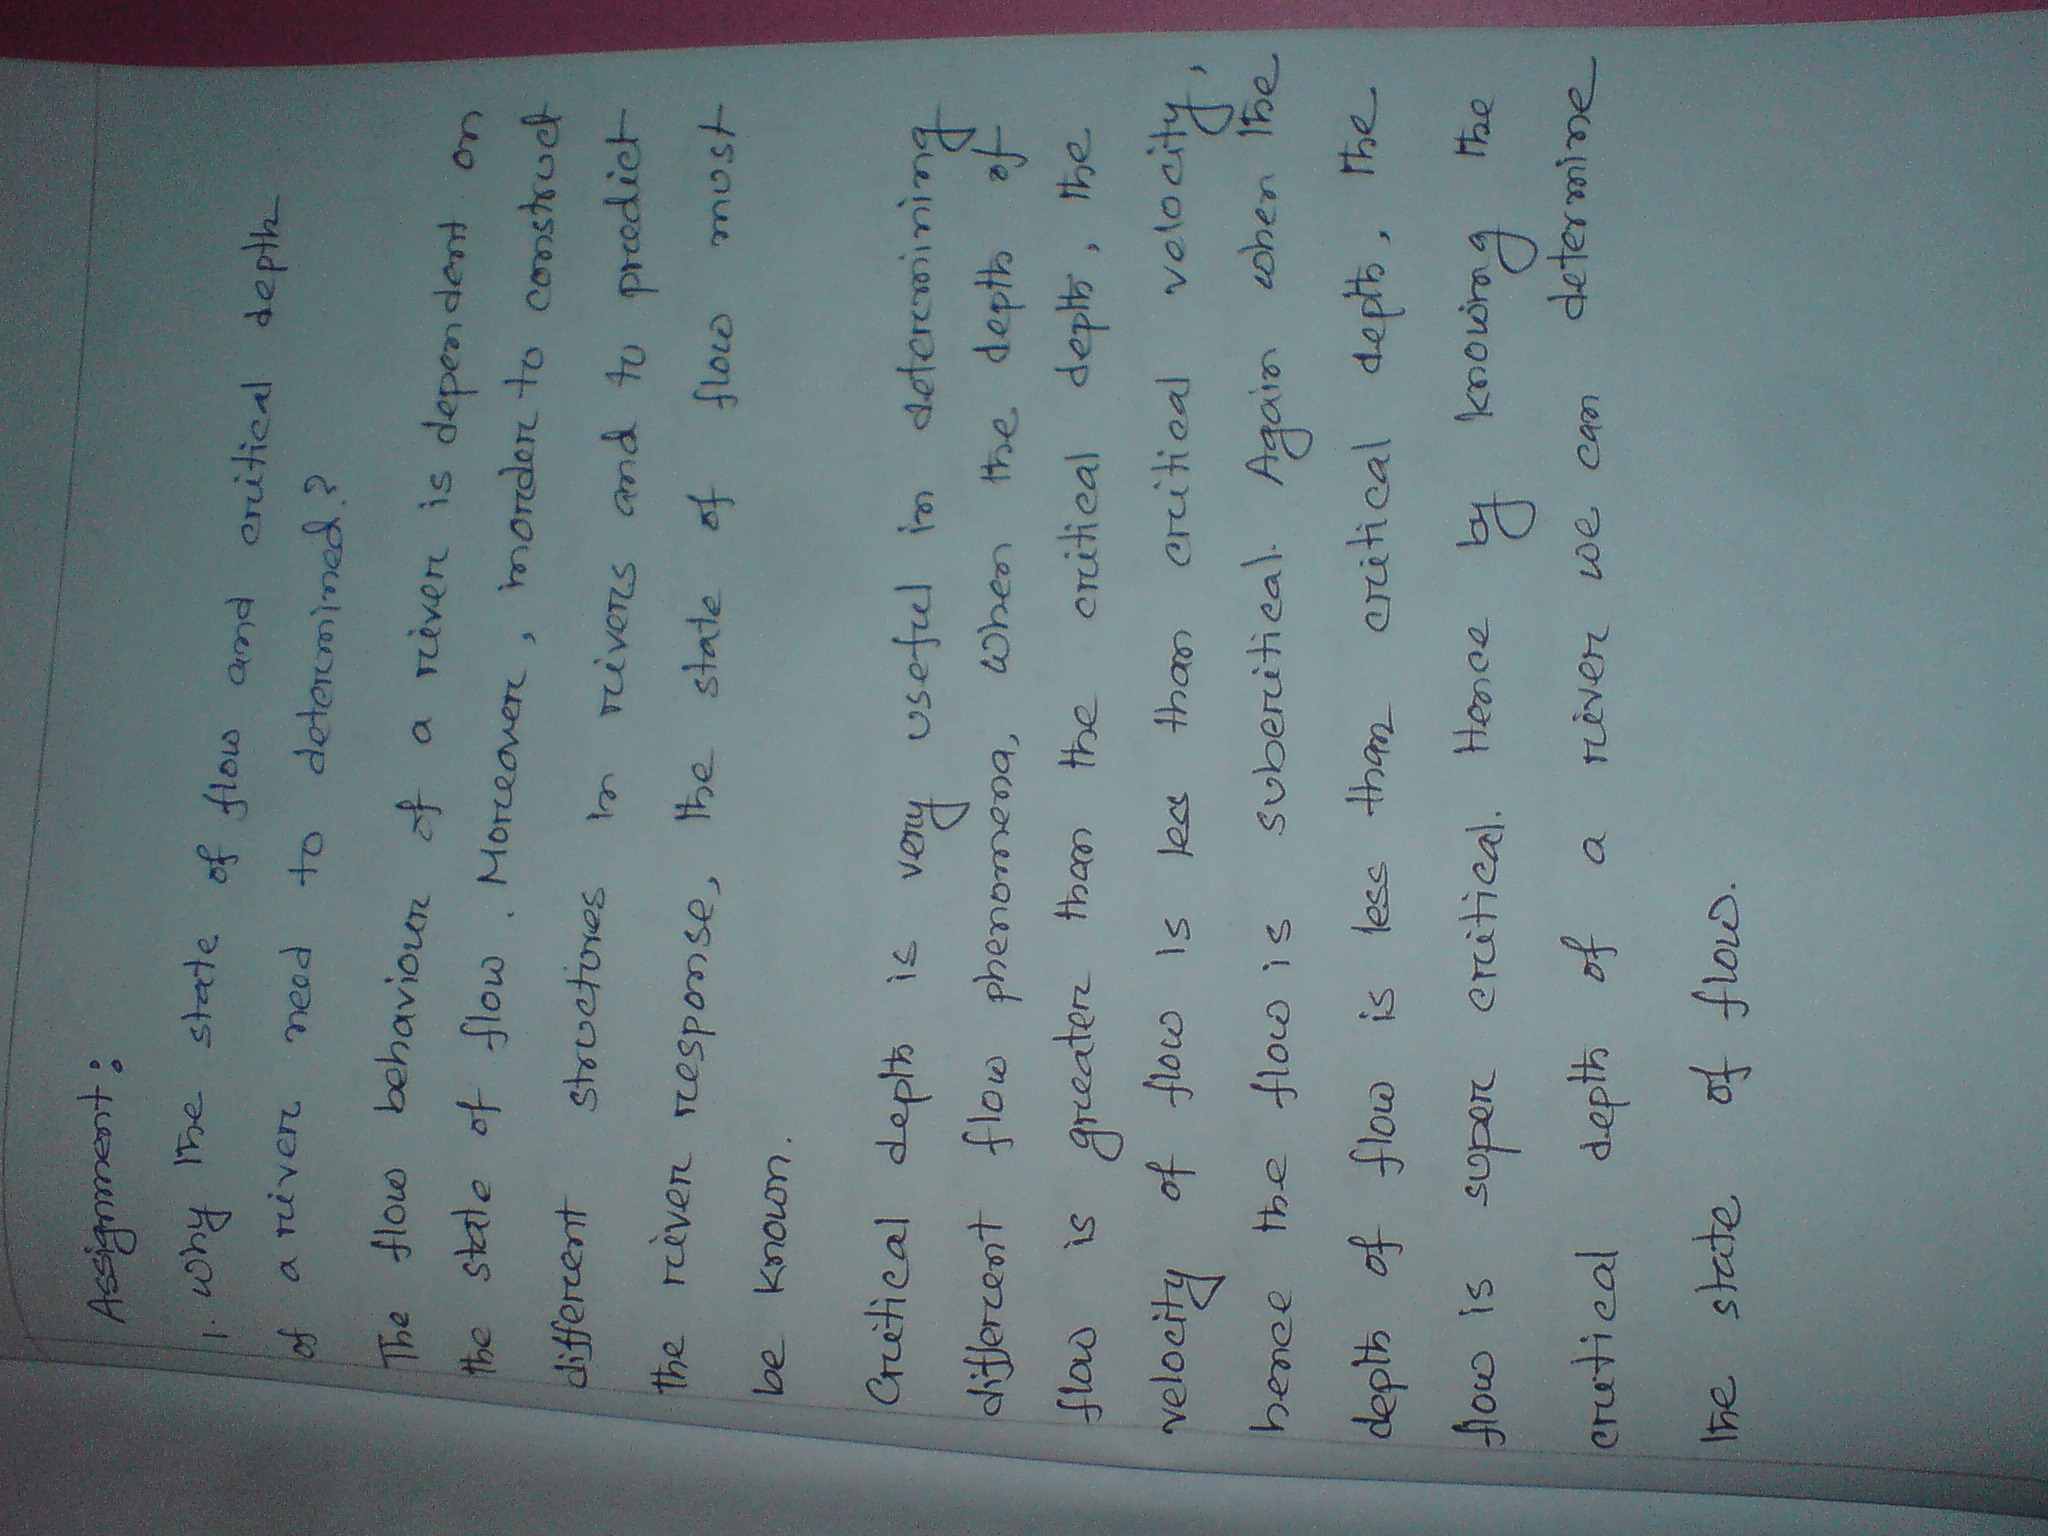 Assignment:
1. Why the state of flow and critical depth
of a river need to determined?
The flow behaviour of a river is dependent on
the state of flow. Moreover, inorder to construct
different structures in rivers and to predict
the river response, the state of flow must
be known.
Critical depth is very useful in determining
different flow phenomena, When the depth of
flow is greater than the critical depth, the
velocity of flow is less than critical velocity,
hence the flow is subcritical. Again when the
depth of flow is less than critical depth, the
flow is super critical. Hence by knowing the
critical depth of a river we can determine
the state of flow.